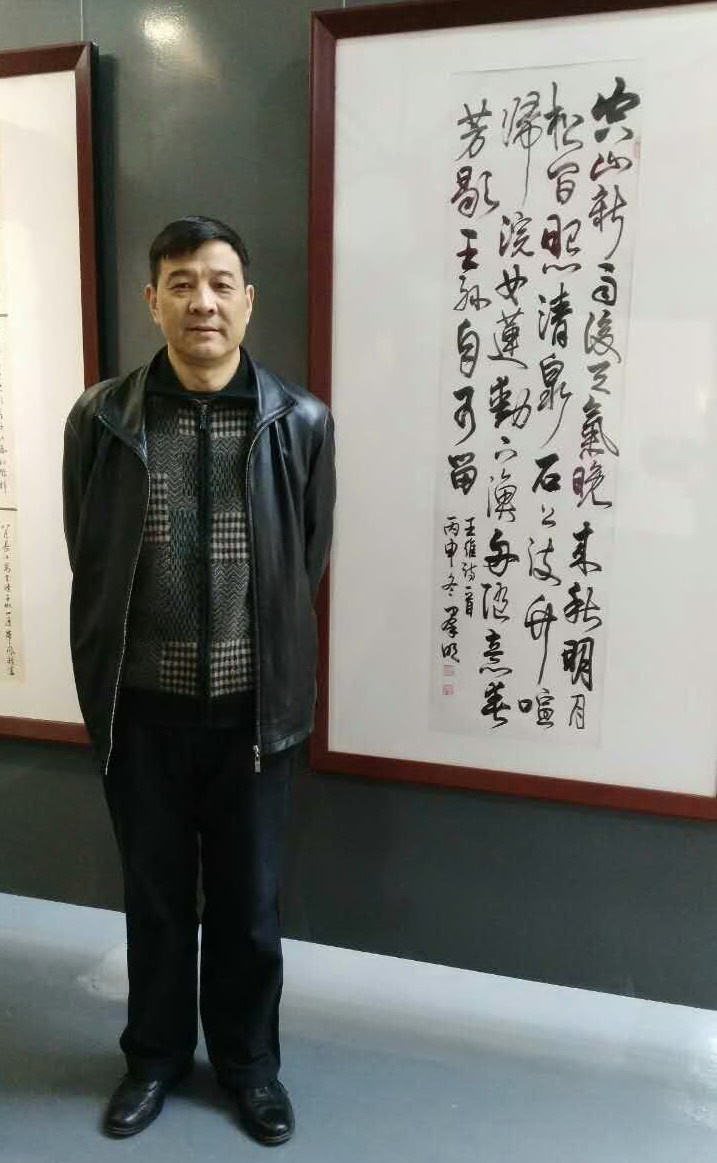 空山新雨後天氣晚来秋明月
松間照清泉石上流竹喧
歸浣女蓮動下漁舟隨意春
芳歇王孫自可留
王維詩一首
丙申冬羣明